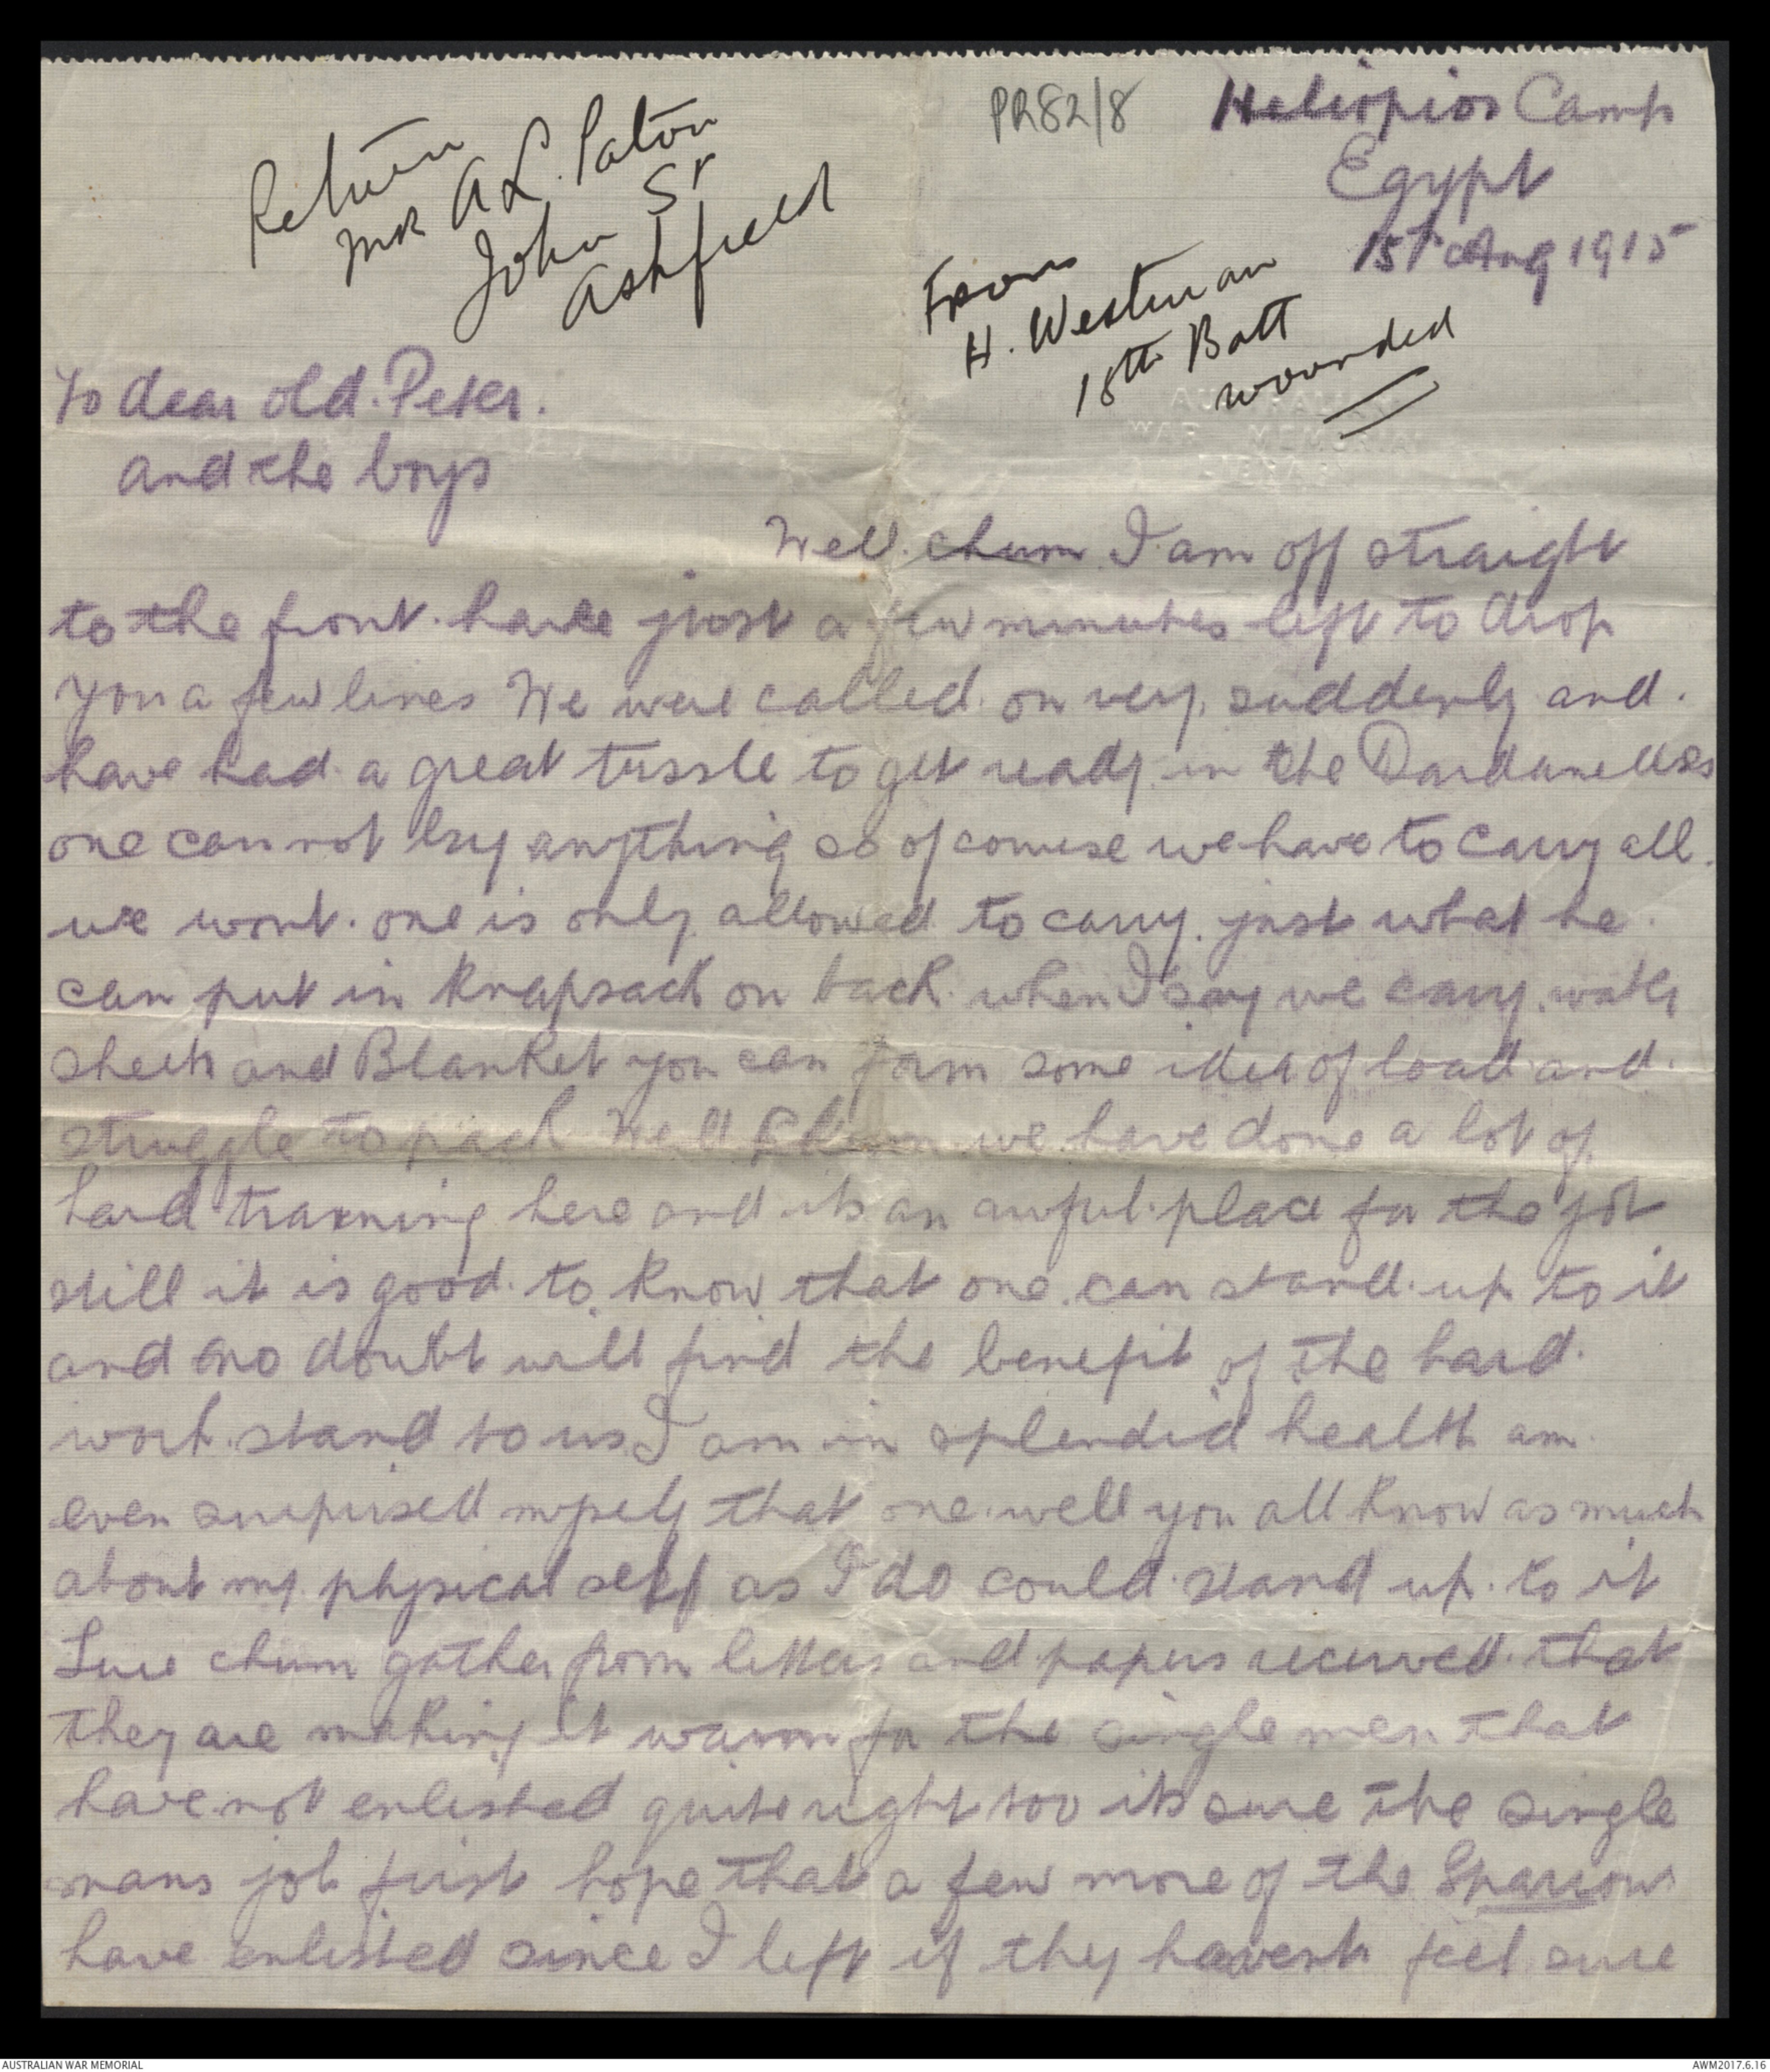 PR82/8
Heliopios Camp
Egypt
15th Aug 1915
Return
Mr A.L. Paton
John St
Ashfield
From
H. Westman
18th Batt
wounded
AUSTRALIAN
WAR MEMORIAL
LIBRARY
To dear old Peter.
and the boys
Well chum I am off straight
to the front. have just a few minutes left to drop
you a few lines We were called on very suddenly and
have had a great tussle to get ready in the Dardanelles
one cannot buy anything so of course we have to carry all
we want. one is only allowed to carry just what he
can put in knapsack on back. when I say we carry water
sheets and Blanket you can form some idea of load and
struggle to pack Well Chum we have done a lot of
hard training here and its an awful place for the job
still it is good to know that one can stand up to it
and no doubt will find the benefit of the hard
work stand to us I am in splendid health am
even surprised myself that one well you all know as much
about my physical self as I do could stand up to it
Sure chum gather from letters and papers received that
they are making it warm for the single men that
have not enlisted quite right too its sure the single
mans job first hope that a few more of the Sparrows
have enlisted since I left if they havent feel sure
AUSTRALIAN WAR MEMORIAL
AWM2017.6.16